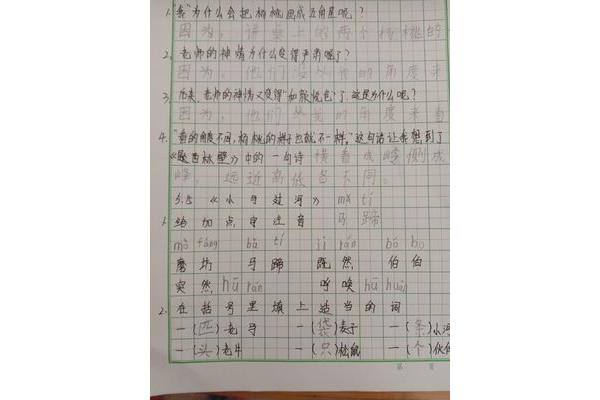 1. "我"为什么会把杨桃画成五角星呢？
因为，讲桌上的两个杨桃的
2. 老师的神情为什么变得严肃呢了？
因为，他们没从我的角度来
3. 后来，老师的神情又变得"和颜悦色"了，这是为什么呢？
因为，他们从我的角度来看
4. "看的角度不同，杨桃的样子也就不一样。"这句话让我想到了
《题西林壁》中的一句诗 横看成岭侧成
峰，远近高低各不同。
3.5 《小马过河》 mǎ tí
1. 给加点字注音 马蹄
mò fáng bà tí jì rán bó bo
磨坊 马蹄 既然 伯伯
突然 hū rán 呼唤 hū huàn
2. 在括号里填上适当的词
一(匹)老马 一(袋)麦子 一(条)小河
一(头)老牛 一(只)松鼠 一(个)伙伴
第 页